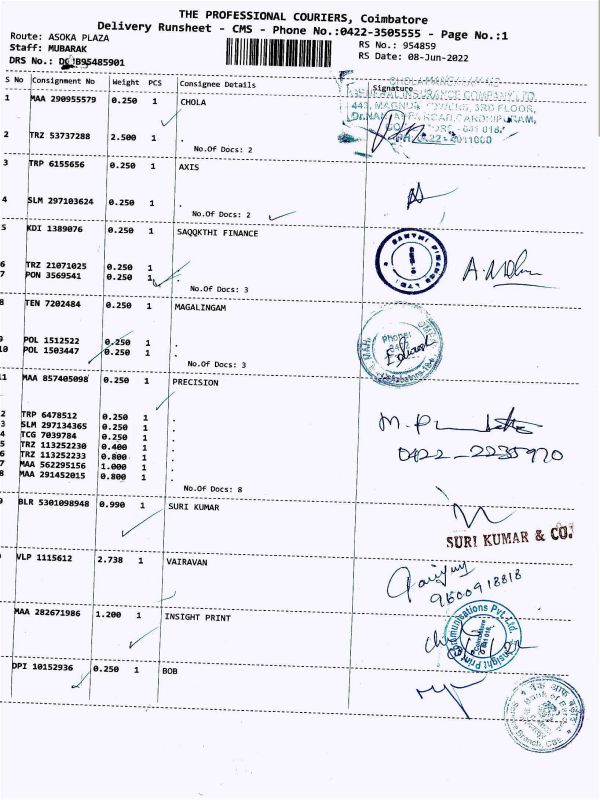 THE PROFESSIONAL COURIERS, Coimbatore
Delivery Runsheet - CMS - Phone No.:0422-3505555 - Page No.:1
Route: ASOKA PLAZA RS No.: 954859
Staff: MUBARAK RS Date: 08-Jun-2022
DRS No.: B95485901
S No Consignment No Weight PCS Consignee Details Signature
1 MAA 290955579 0.250 1 CHOLA
GENERAL INSURANCE COMPANY LTD.
443, MAGNUM TOWERS, 3RD FLOOR,
2 TRZ 53737288 2.500 1 .
No.Of Docs: 2
3 TRP 6155656 0.250 1 AXIS
4 SLM 297103624 0.250 1 .
No.Of Docs: 2
5 KDI 1389076 0.250 1 SAQQKTHI FINANCE
6 TRZ 21071025 0.250 1 .
7 PON 3569541 0.250 1 .
No.Of Docs: 3
8 TEN 7202484 0.250 1 MAGALINGAM
9 POL 1512522 0.250 1 .
10 POL 1503447 0.250 1 .
No.Of Docs: 3
11 MAA 857405098 0.250 1 PRECISION
2 TRP 6478512 0.250 1 .
3 SLM 297134365 0.250 1 .
4 TCG 7039784 0.250 1 .
5 TRZ 113252230 0.400 1 .
6 TRZ 113252233 0.800 1 .
7 MAA 562295156 1.000 1 .
8 MAA 291452015 0.800 1 .
No.Of Docs: 8
0422-2235970
9 BLR 5301098948 0.990 1 SURI KUMAR
SURI KUMAR & CO.
VLP 1115612 2.738 1 VAIRAVAN
9600918818
MAA 282671986 1.200 1 INSIGHT PRINT
Insight Print Communications Pvt. Ltd.
DPI 10152936 0.250 1 BOB